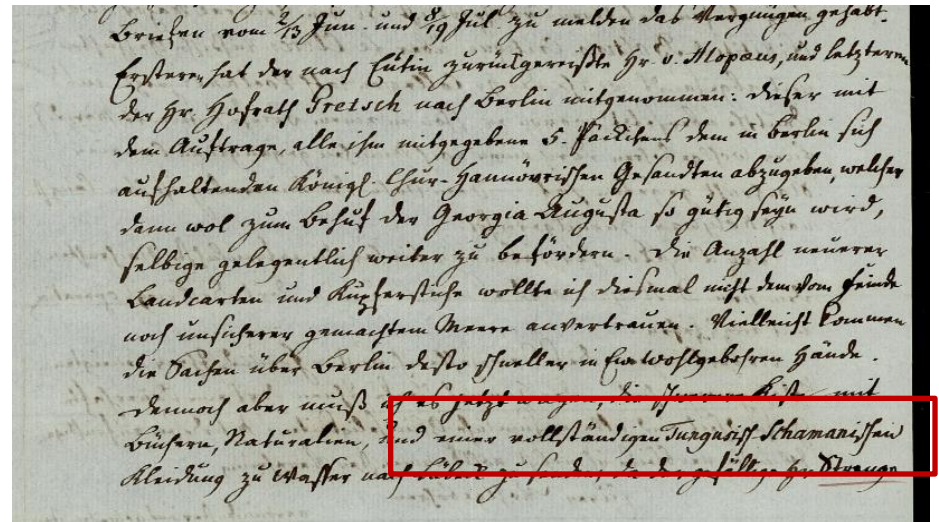 Briefen vom 2/13 Jun. und 8/19 Jul. zu melden das Vergnügen gehabt.
Ersteren hat der nach Eutin zurückgereißte Hr. v. Alopæus, und letzteren
der Hr. Hofrath Gretsch nach Berlin mitgenommen: dieser mit
dem Auftrage, alle ihm mitgegebene 5. Päckchens dem in Berlin sich
aufhaltenden Königl. Chur-Hannövrischen Gesandten abzugeben, welcher
dann wol zum Behuf der Georgia Augusta so gütig seyn wird,
selbige gelegentlich weiter zu befördern. Die Anzahl neuerer
Landcarten und Kupferstiche wollte ich diesmal nicht dem vom Feinde
noch unsicherer gemachtem Meere anvertrauen. Vielleicht kommen
die Sachen über Berlin desto schneller in Ew. Wohlgebohren Hände.
Dennoch aber muß ich es jetzt wagen, die schwerere Kiste mit
Büchern, Naturalien, und einer vollständigen Tungusisch Schamanischen
Kleidung zu Wasser nach Lübeck zu senden, da der gefällige Hr. Strenge